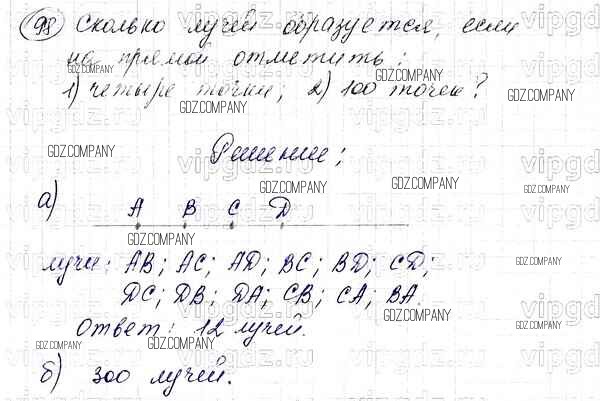 98 Сколько лучей образуется, если
на прямой отметить:
1) четыре точки; 2) 100 точек?
Решение:
а)
A B C D
лучи: AB; AC; AD; BC; BD; CD;
DC; DB; DA; CB; CA; BA.
Ответ: 12 лучей.
б) 300 лучей.
GDZ.COMPANY
vipgdz.ru